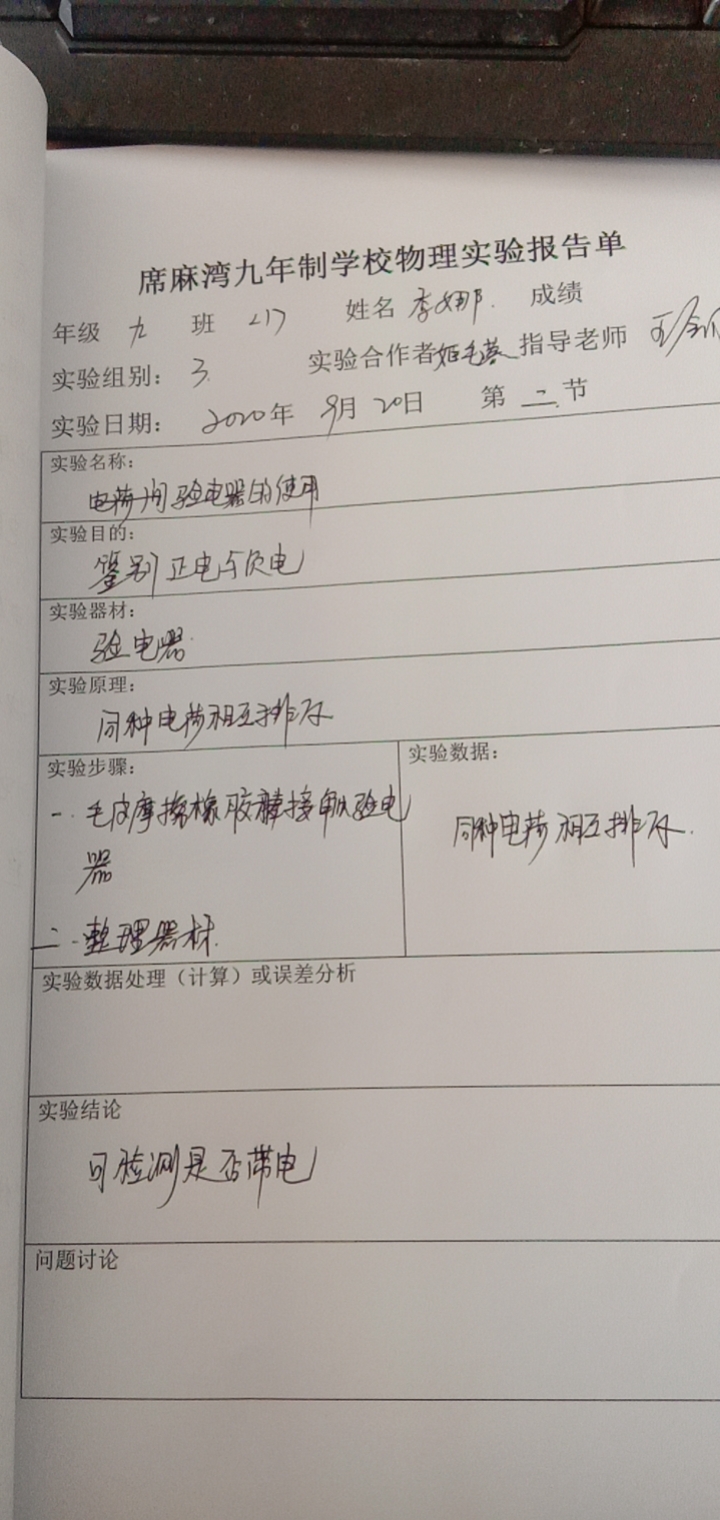 席麻湾九年制学校物理实验报告单
年级 九 班 217 姓名 李娜. 成绩
实验组别: 3. 实验合作者 指导老师
实验日期: 2020年 9月 20日 第 二. 节
实验名称:
验电器的使用
实验目的:
鉴别正电与负电
实验器材:
验电器.
实验原理:
同种电荷相互排斥
实验步骤:
一. 毛皮摩擦橡胶棒接触验电
器
二. 整理器材.
实验数据:
同种电荷相互排斥.
实验数据处理(计算)或误差分析
实验结论
可检测是否带电
问题讨论